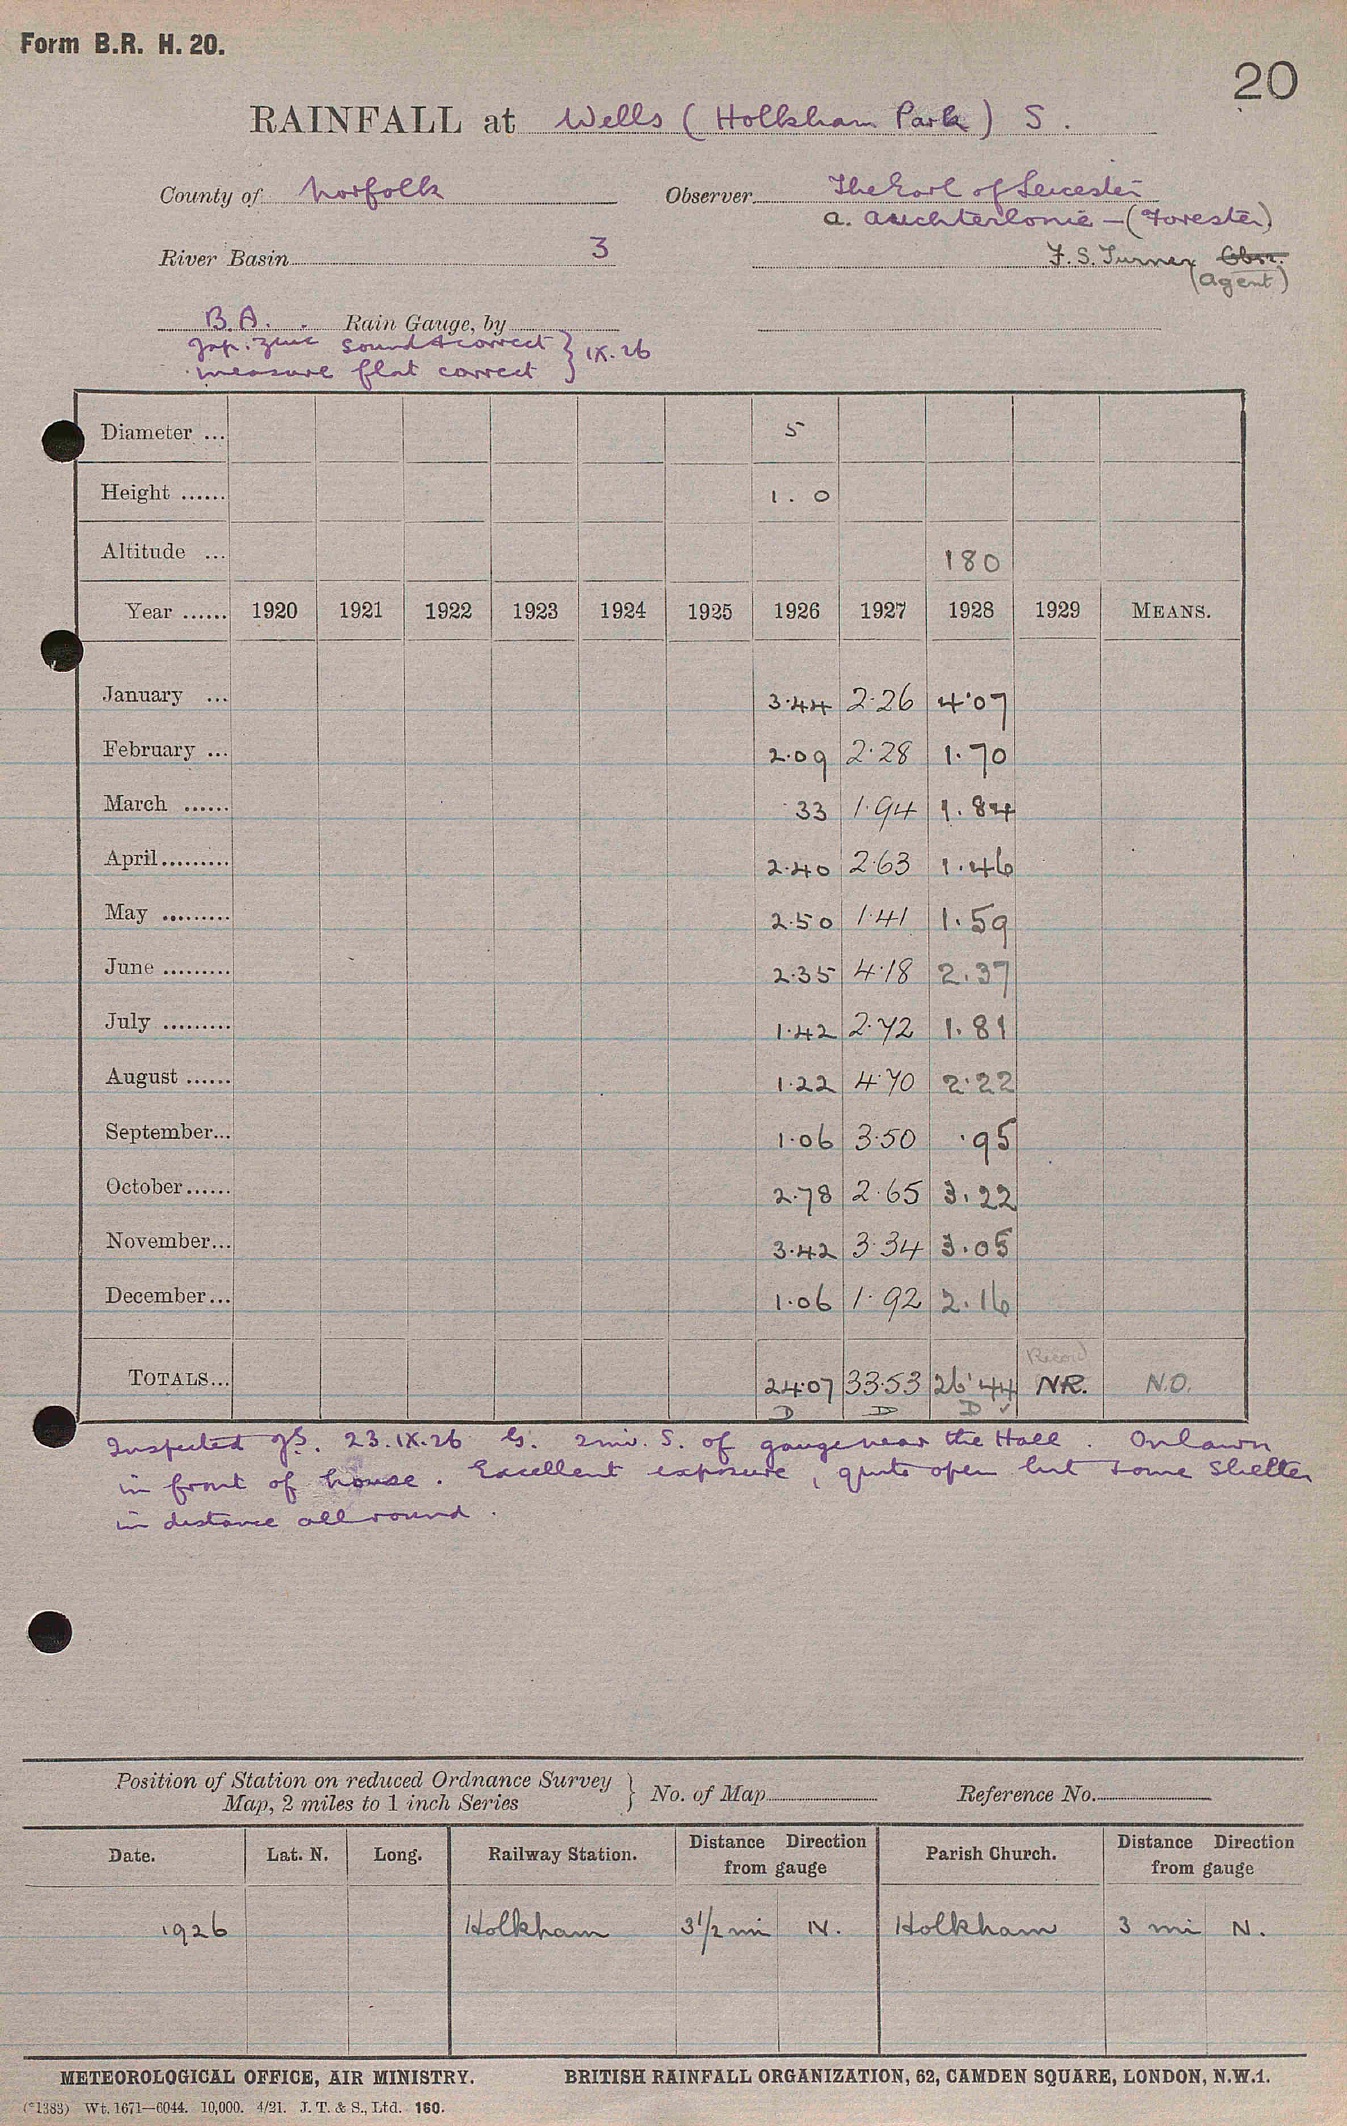 Form B.R. H. 20.
20
RAINFALL at Wells (Holkham Park) S.
County of Norfolk Observer The Earl of Leicester
A. Auchterlonie – (Forester)
River Basin 3 F. S. Turner Obsr.
(Agent)
B.A. Rain Gauge, by
Jap. zinc sound & correct } IX.26
measure flat correct
Diameter ... 5
Height ...... 1. 0
Altitude ... 180
Year ...... 1920 1921 1922 1923 1924 1925 1926 1927 1928 1929 MEANS.
January ... 3·44 2·26 4·07
February ... 2·09 2·28 1·70
March ...... ·33 1·94 1·84
April ......... 2·40 2·63 1·46
May ......... 2·50 1·41 1·59
June ......... 2·35 4·18 2·37
July ......... 1·42 2·72 1·81
August ...... 1·22 4·70 2·22
September... 1·06 3·50 ·95
October...... 2·78 2·65 3·22
November... 3·42 3·34 3·05
December... 1·06 1·92 2·16
Record
TOTALS... 24·07 33·53 26·44 NR. N.D.
D D D ✓
Inspected 23.IX.26 G. 2 mi. S. of gauge near the Hall. On lawn
in front of house. Excellent exposure, quite open but some shelter
in distance all round.
Position of Station on reduced Ordnance Survey } No. of Map Reference No.
Map, 2 miles to 1 inch Series
Date. Lat. N. Long. Railway Station. Distance Direction from gauge Parish Church. Distance Direction from gauge
1926 Holkham 3½ mi N. Holkham 3 mi N.
METEOROLOGICAL OFFICE, AIR MINISTRY. BRITISH RAINFALL ORGANIZATION, 62, CAMDEN SQUARE, LONDON, N.W.1.
(*1383) Wt. 1671—6044. 10,000. 4/21. J. T. & S., Ltd. 160.